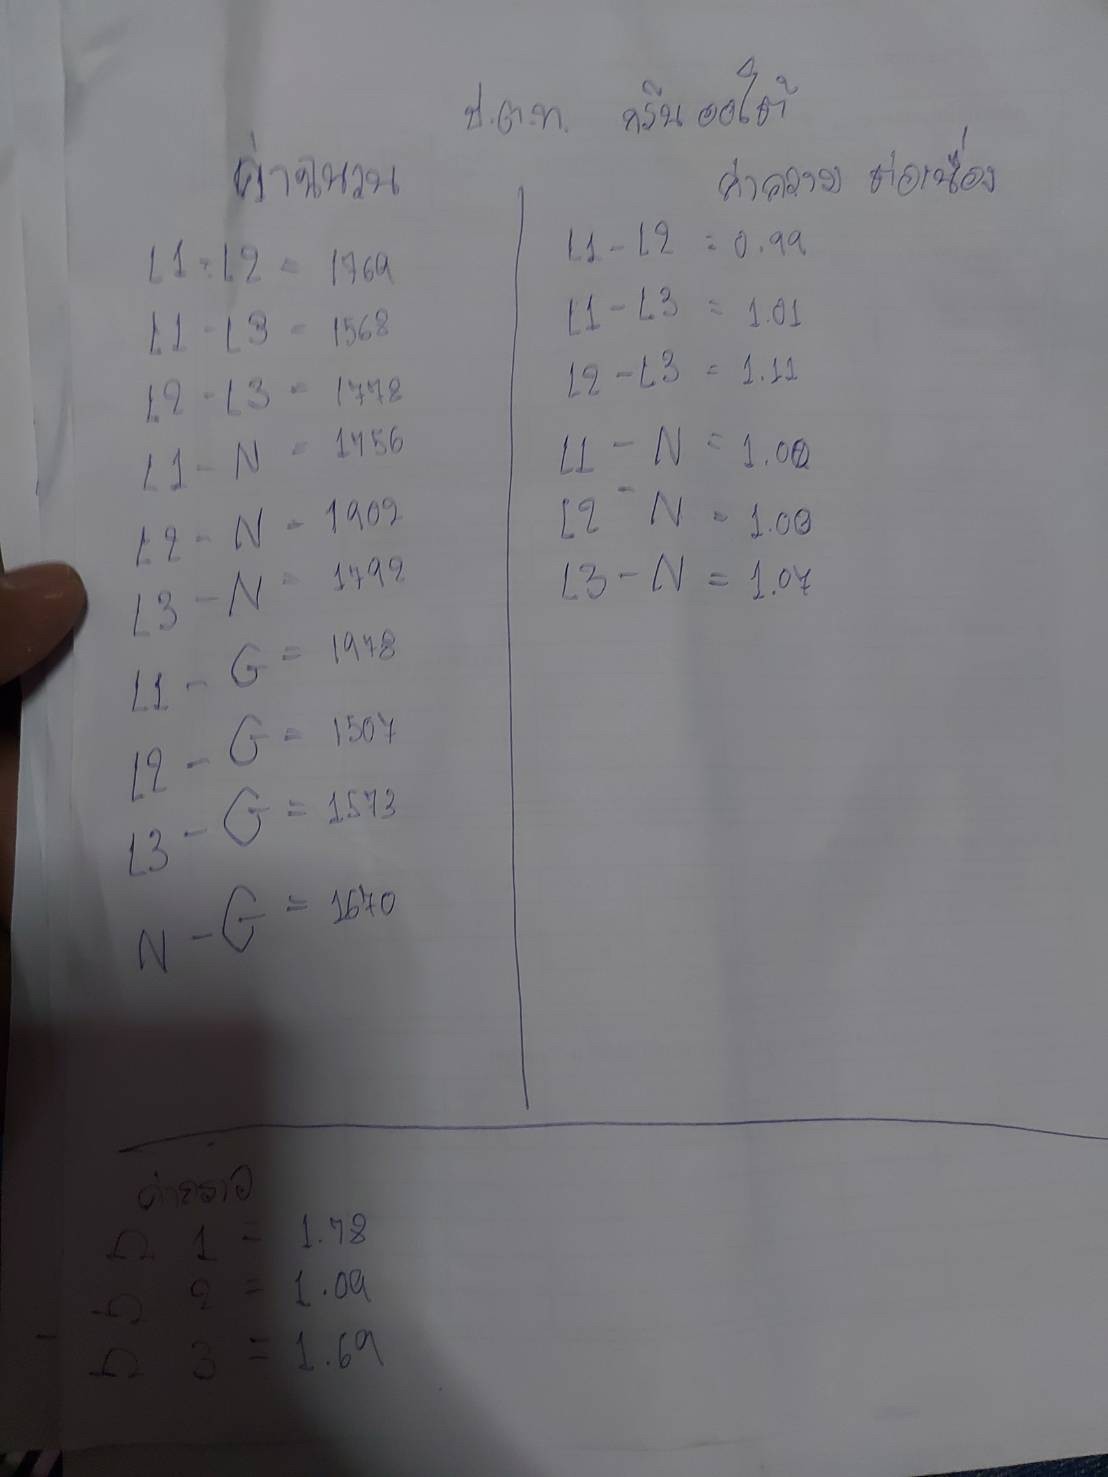 ป.ต.ท. กรีน ออโต้
ค่าฉนวน
L1-L2 = 1769
L1-L3 = 1568
L2-L3 = 1778
L1-N = 1756
L2-N = 1902
L3-N = 1792
L1-G = 1978
L2-G = 1507
L3-G = 1573
N-G = 1670
ค่าความ ต่อเนื่อง
L1-L2 = 0.99
L1-L3 = 1.01
L2-L3 = 1.11
L1-N = 1.00
L2-N = 1.00
L3-N = 1.07
ค่ากราว
Ω 1 = 1.78
Ω 2 = 1.09
Ω 3 = 1.69